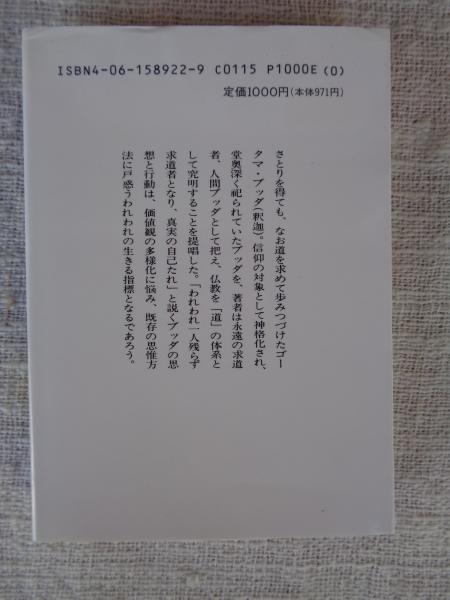 ISBN4-06-158922-9 C0115 P1000E (0)
定価1000円(本体971円)
さとりを得ても、なお道を求めて歩みつづけたゴー
タマ・ブッダ(釈迦)。信仰の対象として神格化され、
堂奥深く祀られていたブッダを、著者は永遠の求道
者、人間ブッダとして把え、仏教を「道」の体系と
して究明することを提唱した。「われわれ一人残らず
求道者となり、真実の自己たれ」と説くブッダの思
想と行動は、価値観の多様化に悩み、既存の思惟方
法に戸惑うわれわれの生きる指標となるであろう。